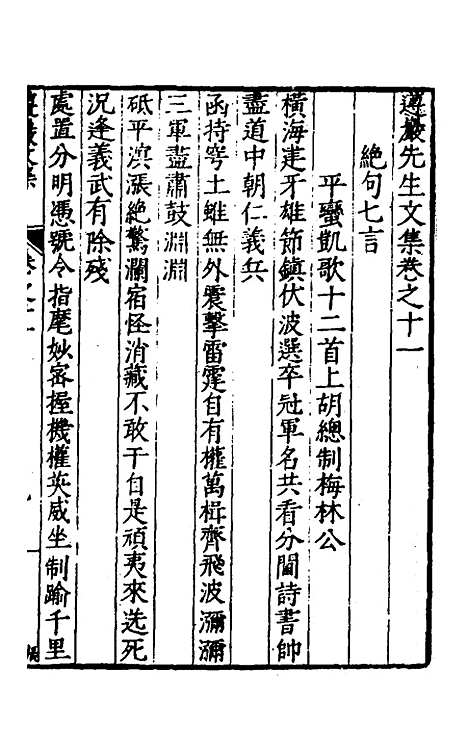 遵巖先生文集卷之十一
絶句七言
平蠻凱歌十二首上胡總制梅林公
橫海建牙雄節鎮伏波選卒冠軍名共看分閫詩書帥
盡道中朝仁義兵
函持穹土雖無外震擊雷霆自有權萬楫齊飛波瀰瀰
三軍盡肅鼓淵淵
砥平溟漲絶驚瀾宿怪消藏不敢干自是頑夷來送死
況逢義武有除殘
處置分明憑號令指麾妙密握機權英威坐制踰千里